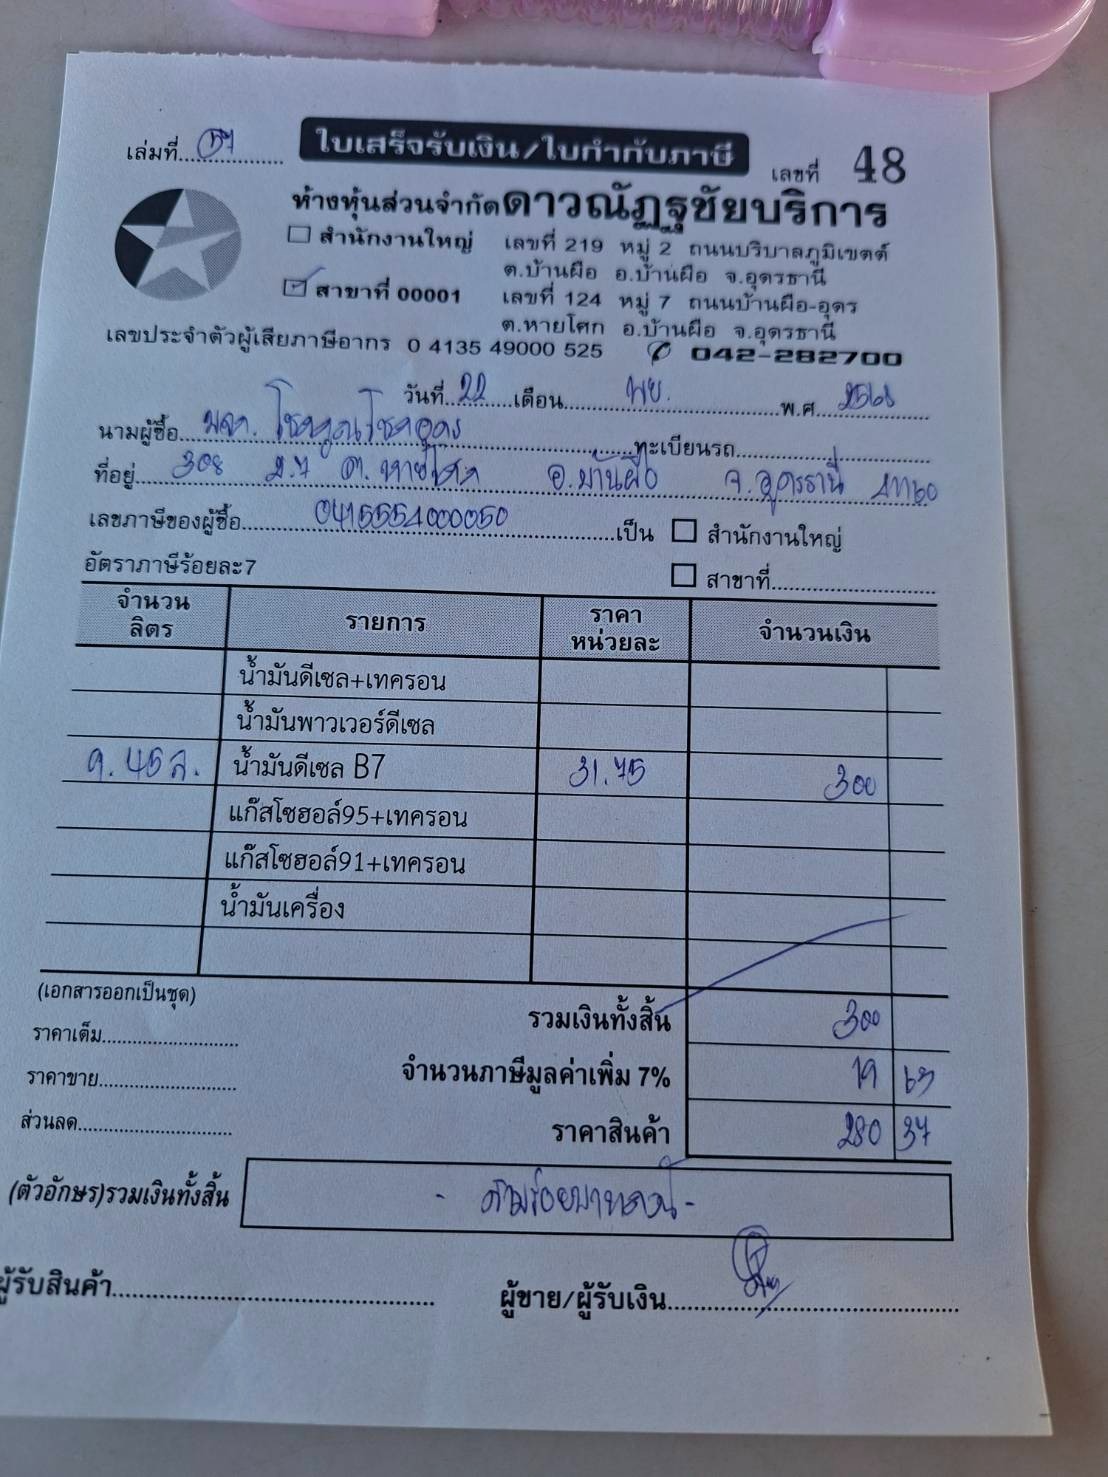 เล่มที่ 57
ใบเสร็จรับเงิน/ใบกำกับภาษี
เลขที่ 48
ห้างหุ้นส่วนจำกัดดาวณัฏฐชัยบริการ
สำนักงานใหญ่ เลขที่ 219 หมู่ 2 ถนนบริบาลภูมิเขตต์
ต.บ้านผือ อ.บ้านผือ จ.อุดรธานี
สาขาที่ 00001 เลขที่ 124 หมู่ 7 ถนนบ้านผือ-อุดร
ต.หายโศก อ.บ้านผือ จ.อุดรธานี
เลขประจำตัวผู้เสียภาษีอากร 0 4135 49000 525 042-282700
วันที่ 22 เดือน พย. พ.ศ. 2568
นามผู้ซื้อ หจก. โชคคูณโชคอุดร ทะเบียนรถ
ที่อยู่ 308 ม.7 ต.หายโศก อ.บ้านผือ จ.อุดรธานี 41160
เลขภาษีของผู้ซื้อ 0415554000050 เป็น สำนักงานใหญ่
อัตราภาษีร้อยละ7 สาขาที่
จำนวน ลิตร รายการ ราคา หน่วยละ จำนวนเงิน
น้ำมันดีเซล+เทครอน
น้ำมันพาวเวอร์ดีเซล
9.45 ล. น้ำมันดีเซล B7 31.75 300
แก๊สโซฮอล์95+เทครอน
แก๊สโซฮอล์91+เทครอน
น้ำมันเครื่อง
(เอกสารออกเป็นชุด)
รวมเงินทั้งสิ้น 300
ราคาเต็ม
จำนวนภาษีมูลค่าเพิ่ม 7% 19 63
ราคาขาย
ราคาสินค้า 280 37
ส่วนลด
(ตัวอักษร)รวมเงินทั้งสิ้น - สามร้อยบาทถ้วน -
ผู้รับสินค้า ผู้ขาย/ผู้รับเงิน